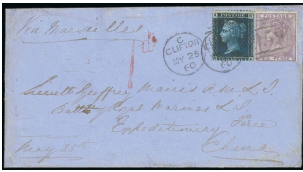 Via Marseilles
CLIFTON
C
MY 25
60
Lieut Geoffrey Mairis R.M.L.I.
Battn Royal Marines L.I.
Expeditionary Force
China
May 25th